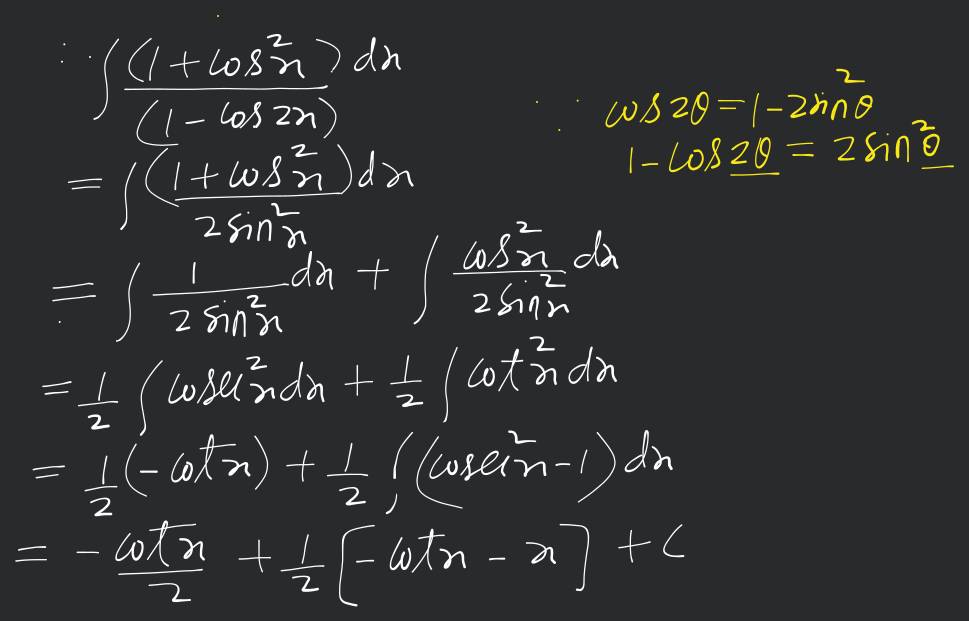 ∵ ∫ (1 + cos²x) dx / (1 - cos 2x)
∵ cos 2θ = 1 - 2sin²θ
1 - cos 2θ = 2 sin²θ
= ∫ (1 + cos²x) dx / 2 sin²x
= ∫ 1 / 2 sin²x dx + ∫ cos²x / 2 sin²x dx
= 1/2 ∫ cosec²x dx + 1/2 ∫ cot²x dx
= 1/2 (- cot x) + 1/2 ∫ (cosec²x - 1) dx
= - cot x / 2 + 1/2 [- cot x - x] + C